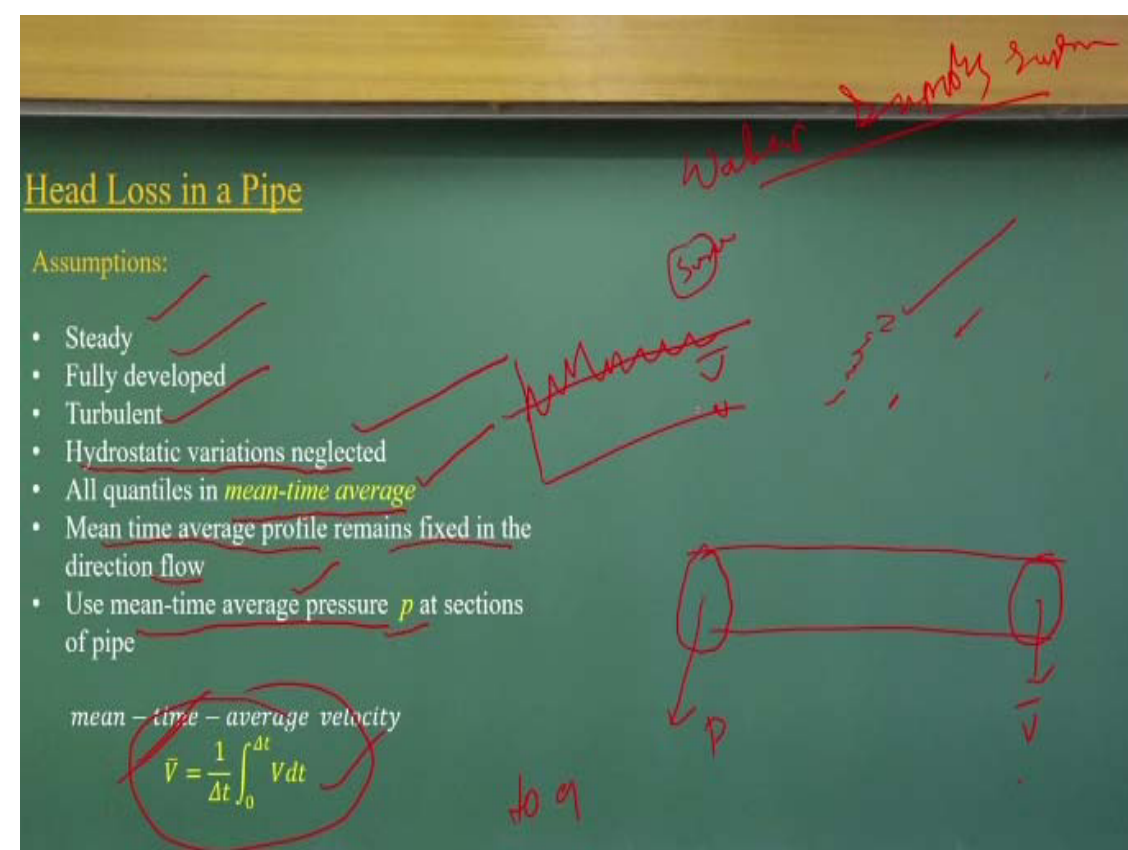 Water Supply System
Head Loss in a Pipe
Assumptions:
• Steady
• Fully developed
• Turbulent
• Hydrostatic variations neglected
• All quantiles in mean-time average
• Mean time average profile remains fixed in the
direction flow
• Use mean-time average pressure p at sections
of pipe
mean – time – average velocity
V̄ = 1/Δt ∫₀^Δt Vdt
V̄
P
V̄
to 9